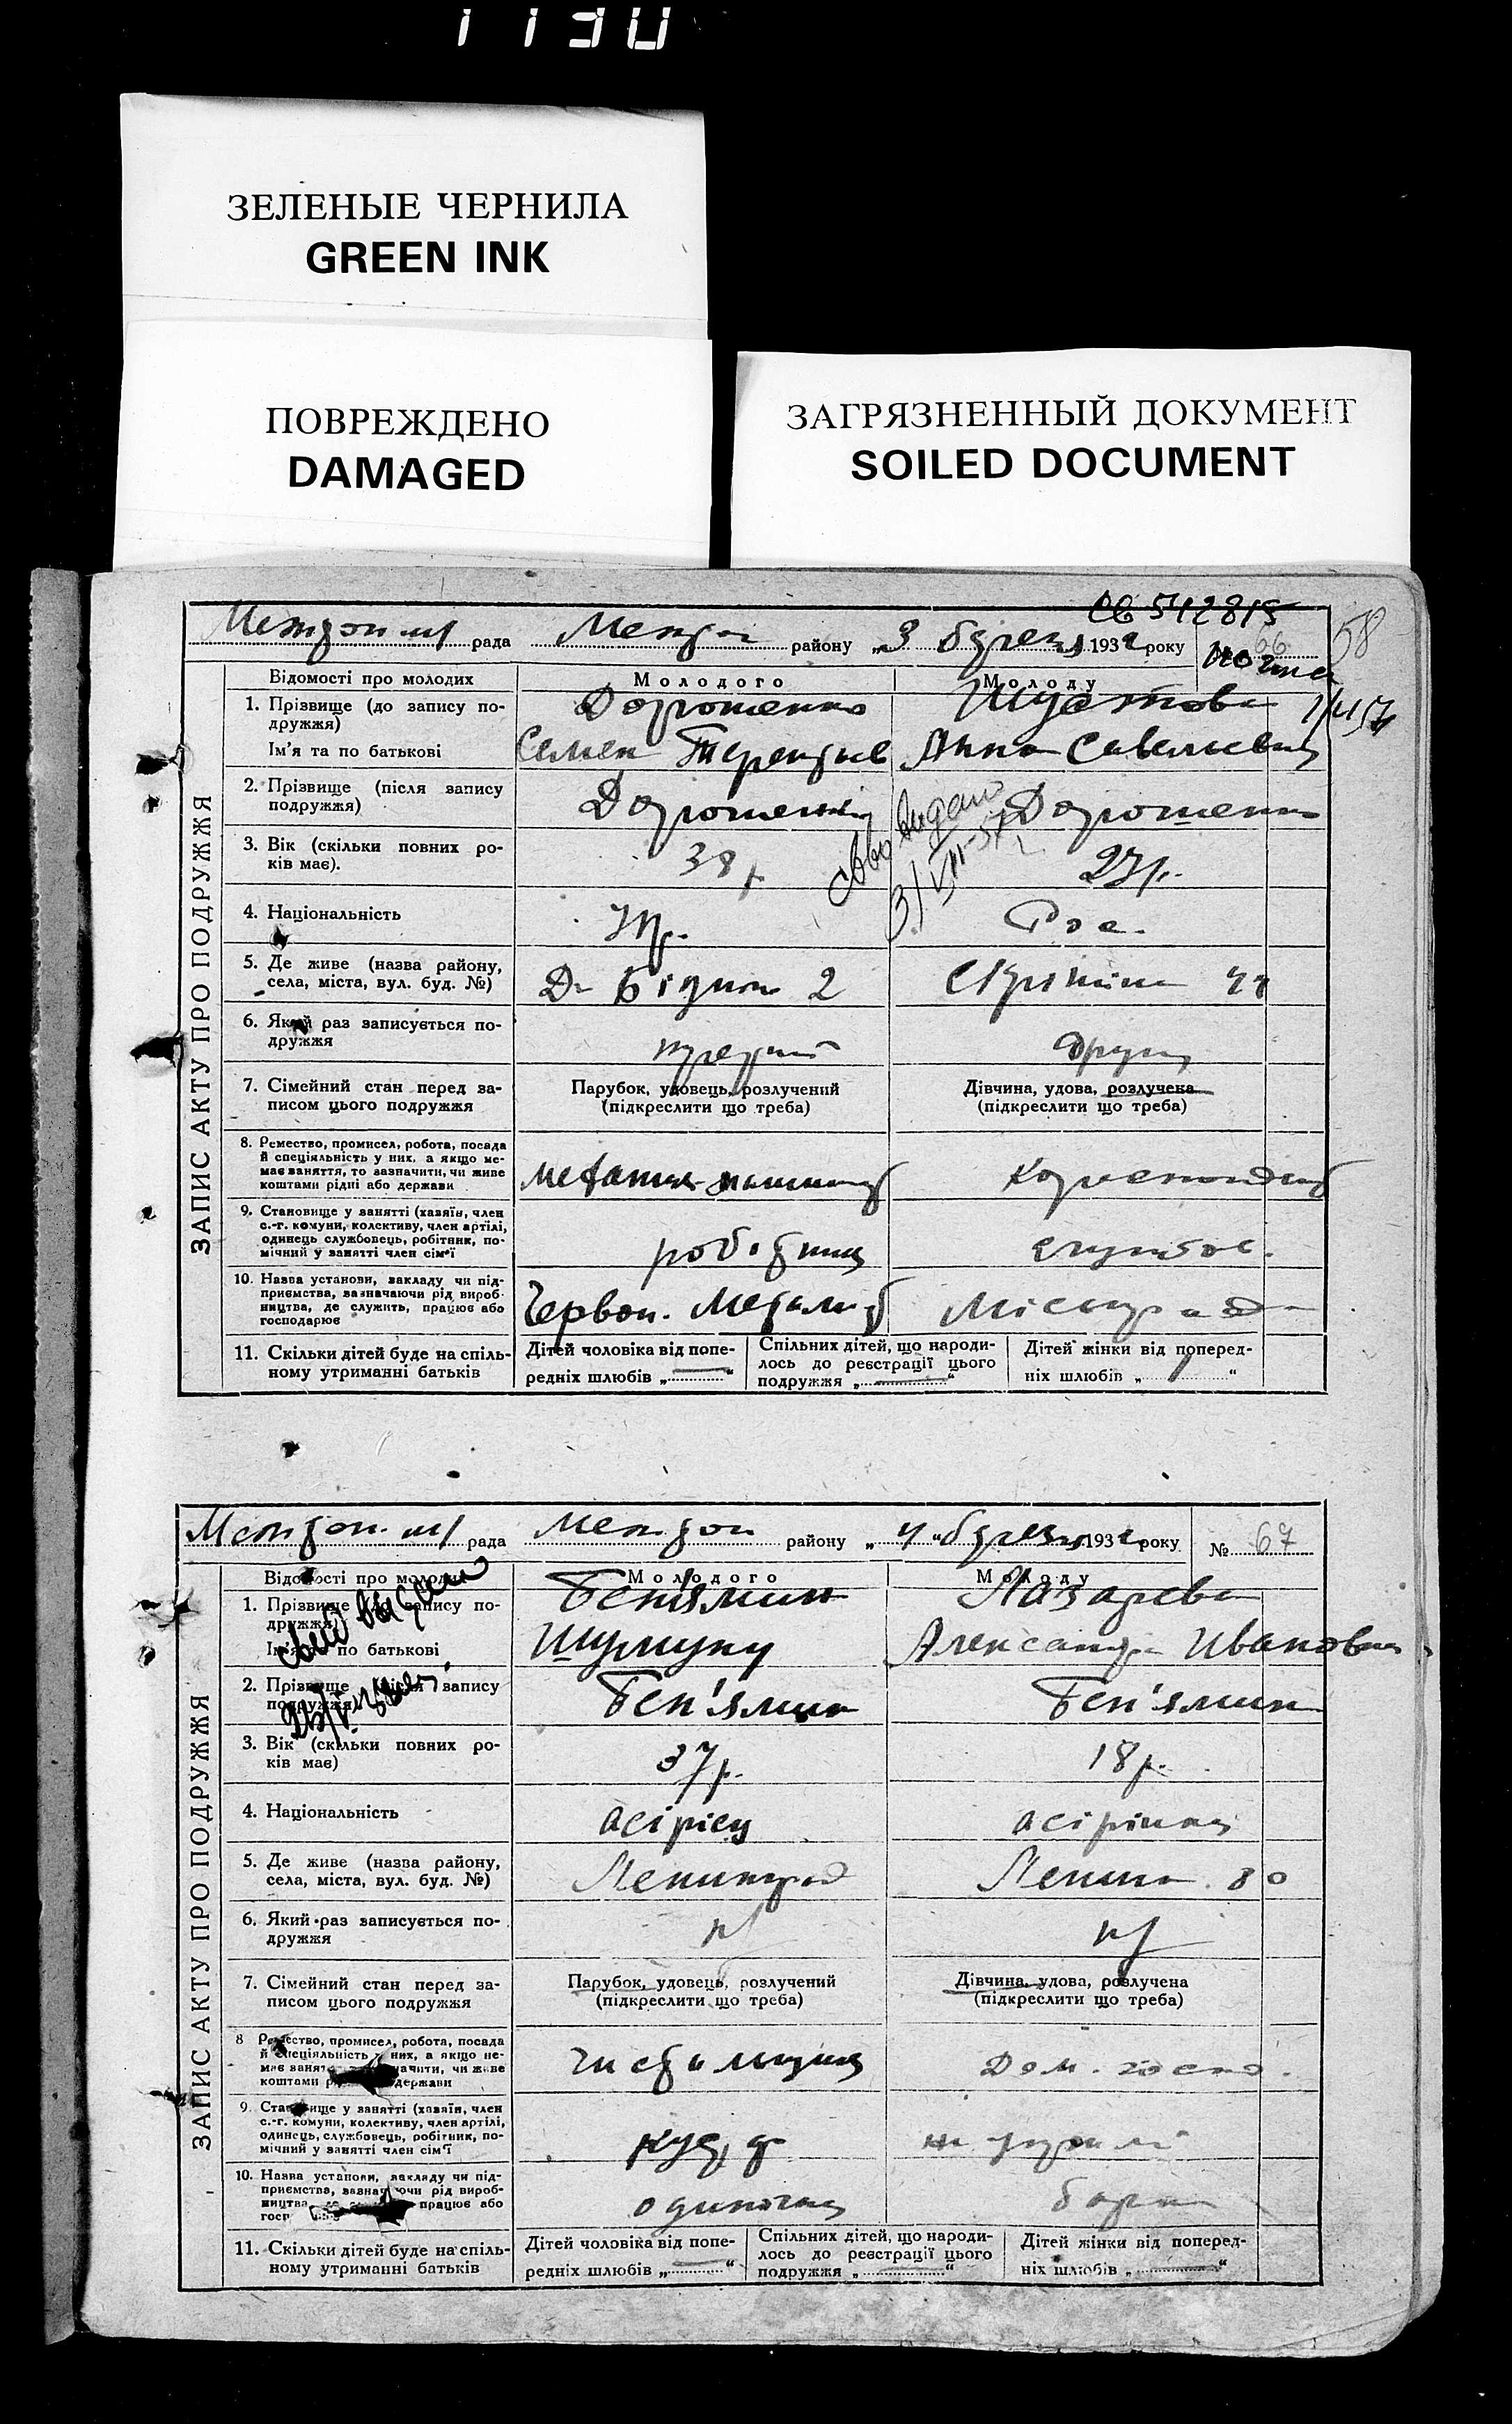 1130
ЗЕЛЕНЫЕ ЧЕРНИЛА
GREEN INK
ПОВРЕЖДЕНО
DAMAGED
ЗАГРЯЗНЕННЫЙ ДОКУМЕНТ
SOILED DOCUMENT
58
ЗАПИС АКТУ ПРО ПОДРУЖЖЯ
рада району „3 березня 1932 року 66
Відомості про молодих Молодого Молоду
1. Прізвище (до запису по-
дружжя) Дорошенко Шустова
Ім'я та по батькові Семен Терентьев Анна Савельевна
2. Прізвище (після запису
подружжя) Дорошенко Дорошенко
видано
3. Вік (скільки повних ро-
ків має). 38 р 27 р.
4. Національність Укр. Рос.
5. Де живе (назва району,
села, міста, вул. буд. №) Д. Бідного 2
6. Який раз записується по-
дружжя перший другий
7. Сімейний стан перед за-
писом цього подружжя
Парубок, удовець, розлучений
(підкреслити що треба)
Дівчина, удова, розлучена
(підкреслити що треба)
8. Ремество, промисел, робота, посада
й спеціяльність у них, а якщо не-
має заняття, то зазначити, чи живе
коштами рідні або держави
кореспондент
9. Становище у занятті (хазяїн, член
с.-г. комуни, колективу, член артілі,
одинець службовець, робітник, по-
мічний у занятті член сім'ї
робітник службов.
10. Назва установи, закладу чи під-
приємства, зазначаючи рід вироб-
ництва, де служить, працює або
господарює
Червон. Металист Міськрада
11. Скільки дітей буде на спіль-
ному утриманні батьків
Дітей чоловіка від попе-
редніх шлюбів „ — “
Спільних дітей, що народи-
лось до реєстрації цього
подружжя „ — “
Дітей жінки від поперед-
ніх шлюбів „ 1 “
ЗАПИС АКТУ ПРО ПОДРУЖЖЯ
рада району „4“ березня 1932 року № 67
Відомості про молодих Молодого Молоду
1. Прізвище (до запису по-
дружжя) Бен'ямин Лазарева
Ім'я та по батькові Александра Ивановна
2. Прізвище (після запису
подружжя) Бен'ямин Бен'ямин
3. Вік (скільки повних ро-
ків має) 37 р. 18 р.
4. Національність асірієц асірійка
5. Де живе (назва району,
села, міста, вул. буд. №) Ленинград Ленина 80
6. Який раз записується по-
дружжя
7. Сімейний стан перед за-
писом цього подружжя
Парубок, удовець, розлучений
(підкреслити що треба)
Дівчина, удова, розлучена
(підкреслити що треба)
8 Ремество, промисел, робота, посада
й спеціяльність у них, а якщо не-
має заняття, то зазначити, чи живе
коштами рідні або держави
чистильщик Дом. госпо.
9. Становище у занятті (хазяїн, член
с.-г. комуни, колективу, член артілі,
одинець, службовець, робітник, по-
мічний у занятті член сім'ї
10. Назва установи, закладу чи під-
приємства, зазначаючи рід вироб-
ництва, де служить, працює або
госп
11. Скільки дітей буде на спіль-
ному утриманні батьків
Дітей чоловіка від попе-
редніх шлюбів „ — “
Спільних дітей, що народи-
лось до реєстрації цього
подружжя „ — “
Дітей жінки від поперед-
ніх шлюбів „ — “